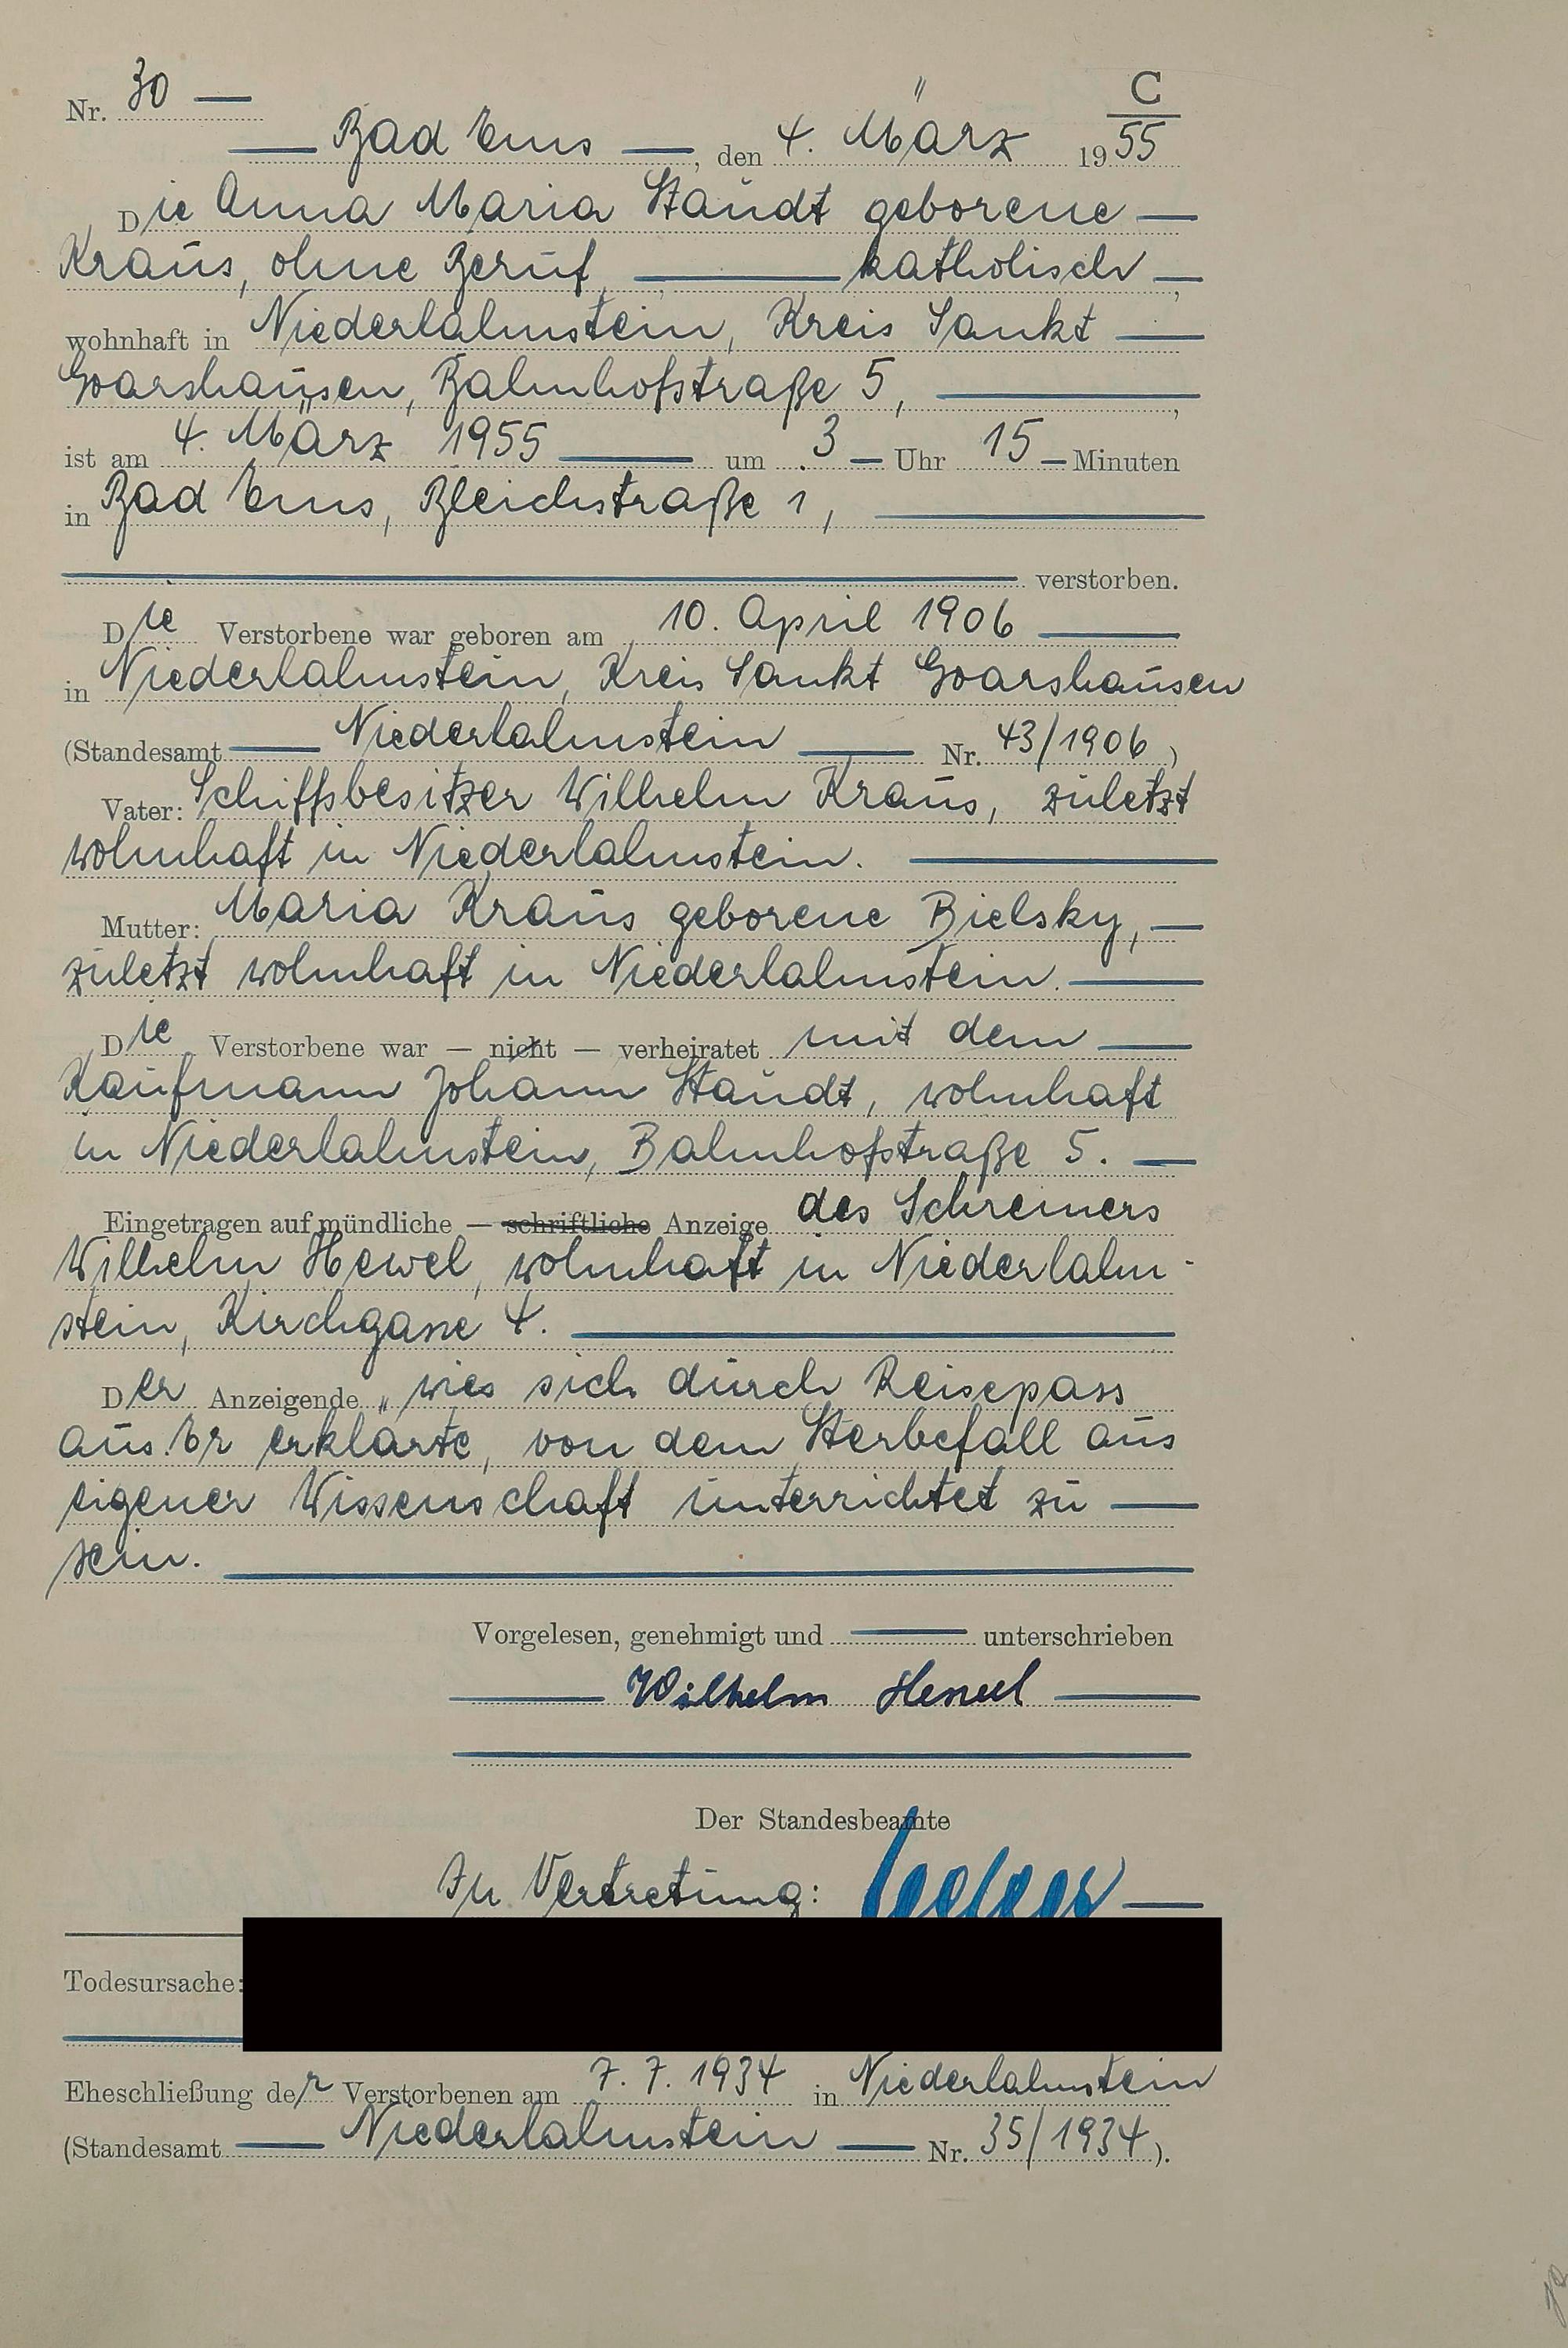 C
Nr. 30 —
— Bad Ems —, den 4. März 1955
Die Anna Maria Staudt geborene —
Kraus, ohne Beruf, — katholisch —,
wohnhaft in Niederlahnstein, Kreis Sankt —
Goarshausen, Bahnhofstraße 5, —,
ist am 4. März 1955 — um 3 — Uhr 15 — Minuten
in Bad Ems, Bleichstraße 1, —
— verstorben.
Die Verstorbene war geboren am 10. April 1906 —
in Niederlahnstein, Kreis Sankt Goarshausen
(Standesamt — Niederlahnstein — Nr. 43/1906)
Vater: Schiffsbesitzer Wilhelm Kraus, zuletzt
wohnhaft in Niederlahnstein. —
Mutter: Maria Kraus geborene Bielsky, —
zuletzt wohnhaft in Niederlahnstein. —
Die Verstorbene war — nicht — verheiratet mit dem —
Kaufmann Johann Staudt, wohnhaft
in Niederlahnstein, Bahnhofstraße 5. —
Eingetragen auf mündliche — schriftliche Anzeige des Schreiners
Wilhelm Hewel, wohnhaft in Niederlahn-
stein, Kirchgasse 4. —
Der Anzeigende wies sich durch Reisepass
aus. Er erklärte, von dem Sterbefall aus
eigener Wissenschaft unterrichtet zu —
sein. —
Vorgelesen, genehmigt und — unterschrieben
— Wilhelm Hewel —
Der Standesbeamte
In Vertretung: —
Todesursache:
Eheschließung der Verstorbenen am 7. 7. 1934 in Niederlahnstein
(Standesamt — Niederlahnstein — Nr. 35/1934).